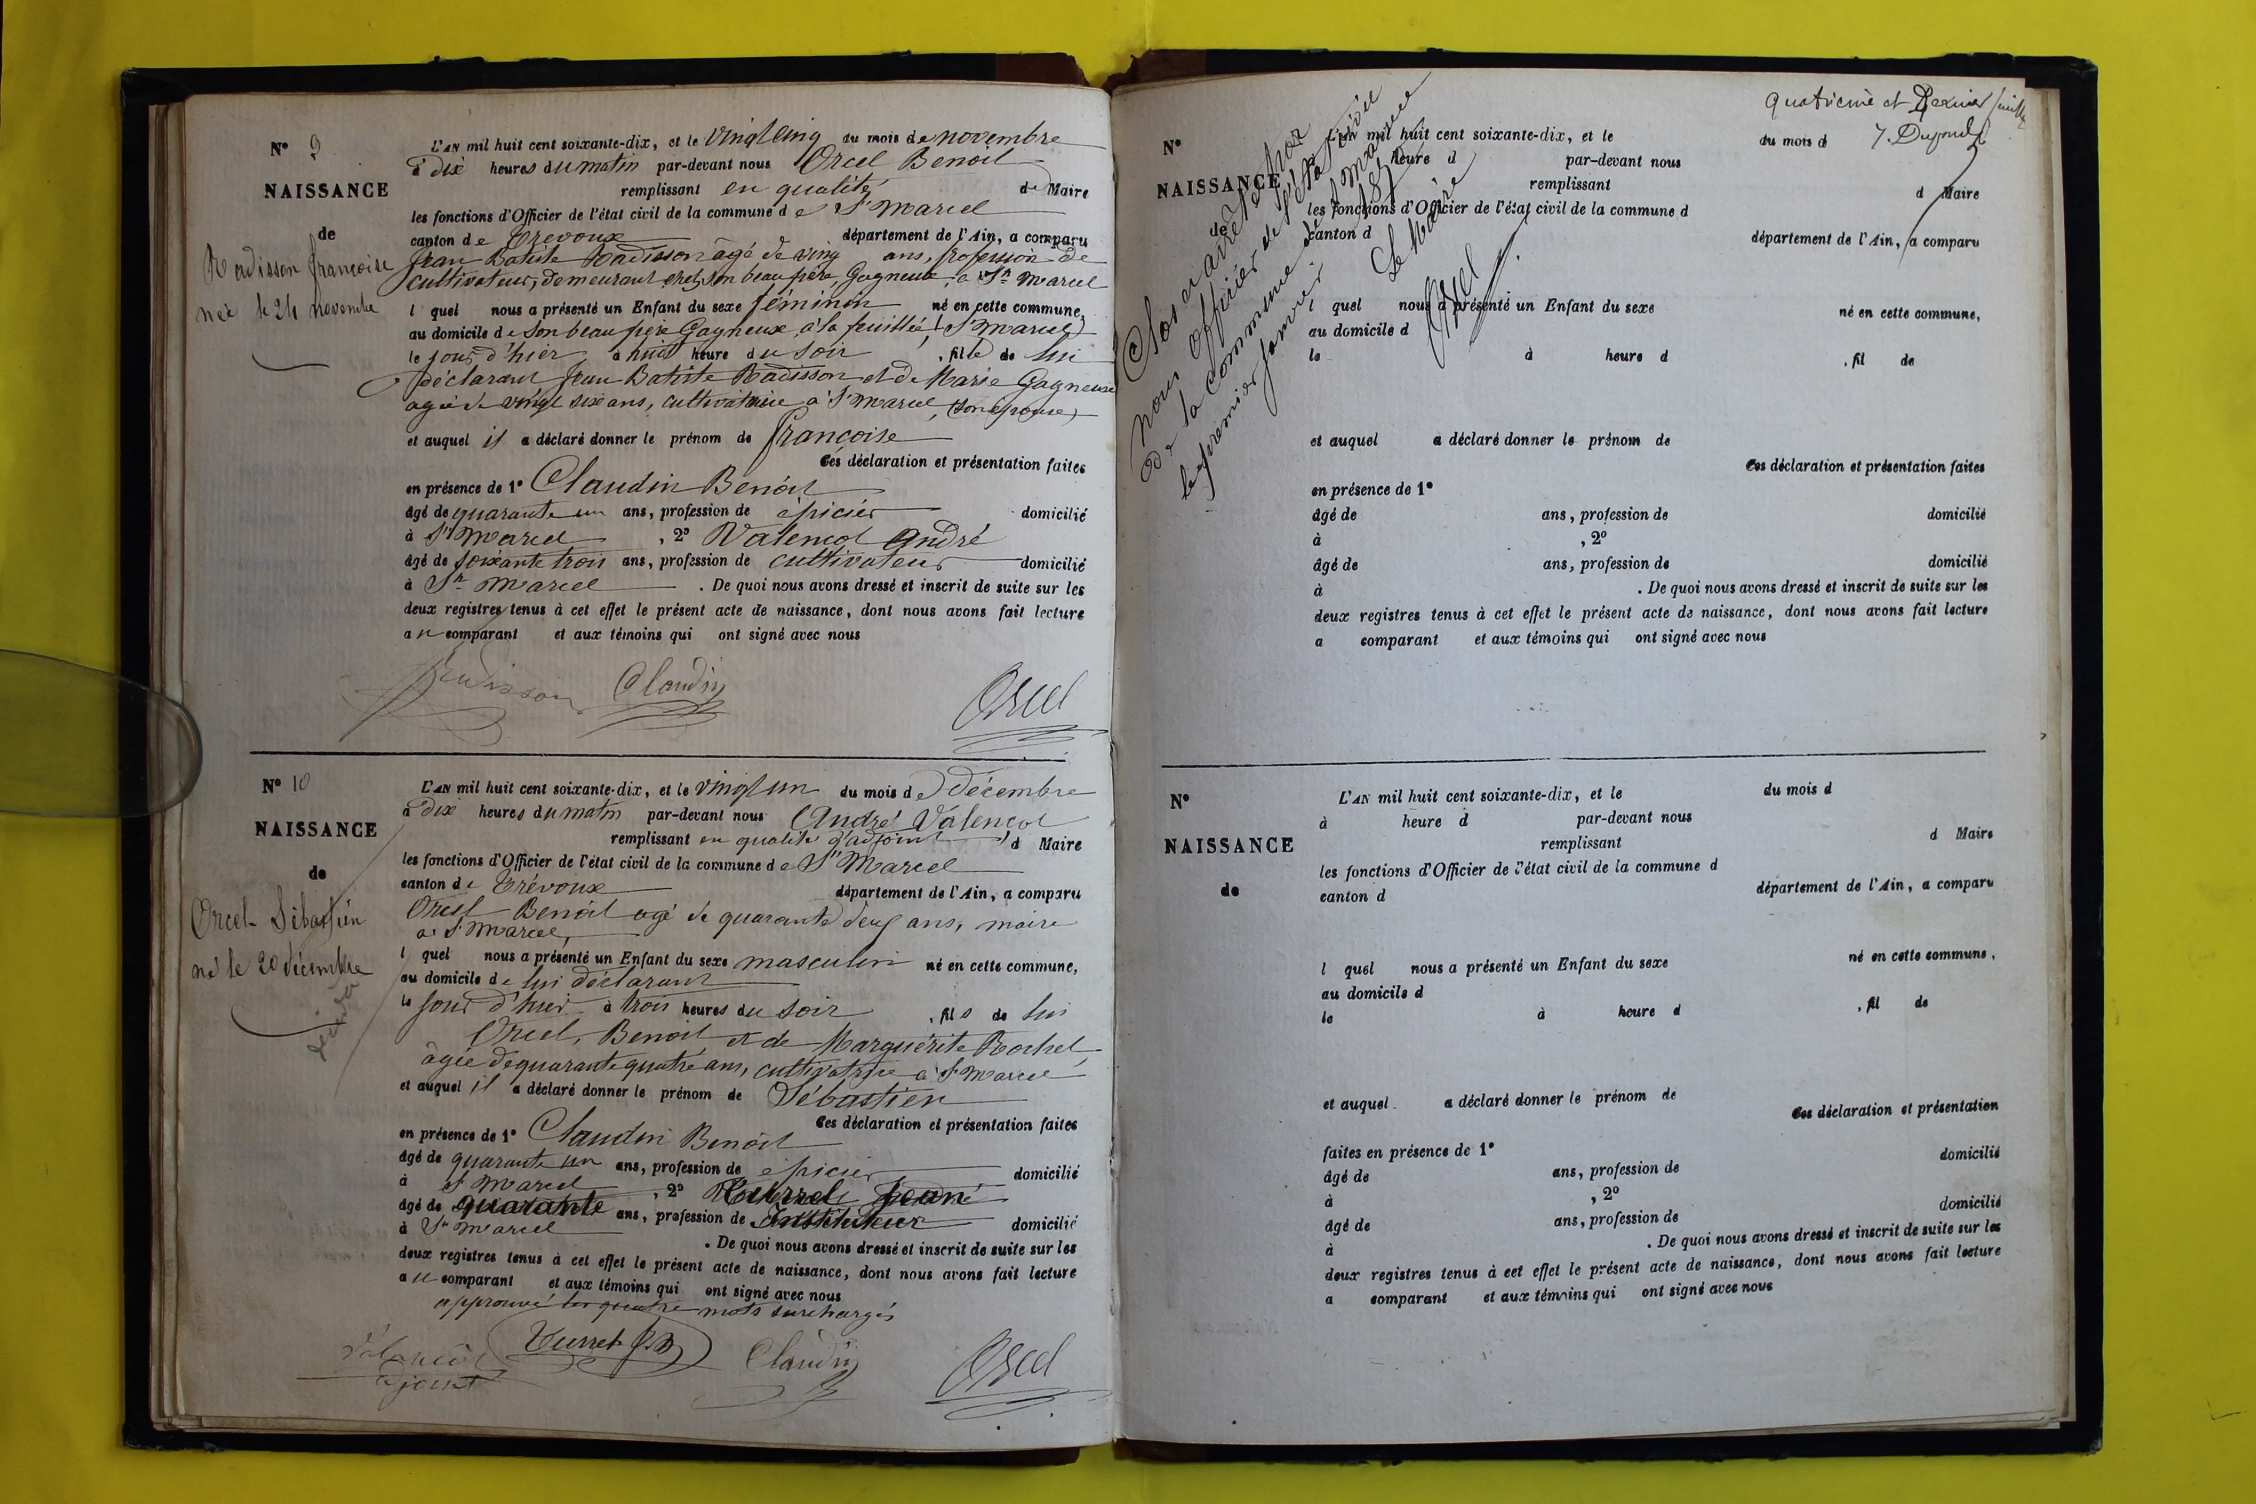 N° 9
NAISSANCE
de
Radisson françoise
née le 24 novembre
L'AN mil huit cent soixante-dix, et le vingt cinq du mois de novembre
à dix heures du matin par-devant nous Orcel Benoit
remplissant en qualité de Maire
les fonctions d'Officier de l'état civil de la commune de St Marcel
canton de Trévoux département de l'Ain, a comparu
Jean Batiste Radisson âgé de ving ans, profession de
cultivateur, demeurant chez son beau père Gagneux, à St Marcel
l quel nous a présenté un Enfant du sexe féminin né en cette commune,
au domicile de son beau père Gagneux, à la feuillée (St Marcel)
le jour d'hier à huit heure du soir , fille de lui
déclarant Jean Batiste Radisson et de Marie Gagneuse
agée de vingt six ans, cultivatrice à St Marcel, (son épouse)
et auquel il a déclaré donner le prénom de françoise
Ces déclaration et présentation faites
en présence de 1° Claudin Benoit
âgé de quarante un ans, profession de épicier domicilié
à St Marcel , 2° Valençot André
âgé de soixante trois ans, profession de cultivateur domicilié
à St Marcel . De quoi nous avons dressé et inscrit de suite sur les
deux registres tenus à cet effet le présent acte de naissance, dont nous avons fait lecture
au comparant et aux témoins qui ont signé avec nous
Radisson Claudin Orcel
N° 10
NAISSANCE
de
Orcel Sébastien
né le 20 décembre
L'AN mil huit cent soixante-dix, et le vingt un du mois de décembre
à dix heures du matin par-devant nous André Valençot
remplissant en qualité d'adjoint d Maire
les fonctions d'Officier de l'état civil de la commune de St Marcel
canton de Trévoux département de l'Ain, a comparu
Orcel Benoit agé de quarante deux ans, maire
à St Marcel,
l quel nous a présenté un Enfant du sexe masculin né en cette commune,
au domicile de lui déclarant
le jour d'hier à trois heures du soir , fils de lui
Orcel, Benoit et de Marguérite Rochel
âgée de quarante quatre ans, cultivatrice à St Marcel
et auquel il a déclaré donner le prénom de Sébastien
Ces déclaration et présentation faites
en présence de 1° Claudin Benoit
âgé de quarante un ans, profession de épicier domicilié
à St Marcel , 2° Turrel Jean
âgé de quarante ans, profession de Instituteur domicilié
à St Marcel . De quoi nous avons dressé et inscrit de suite sur les
deux registres tenus à cet effet le présent acte de naissance, dont nous avons fait lecture
au comparant et aux témoins qui ont signé avec nous
approuvé les quatre mots surchargés
Valençot Turrel Claudin Orcel
adjoint
quatrième et Dernier feuillet
Clos et arrêté par
nous officier de l'état civil
de la commune de St Marcel
le premier janvier 187
Le Maire
Orcel
N°
NAISSANCE
de
L'AN mil huit cent soixante-dix, et le du mois d
heure d par-devant nous
remplissant d Maire
les fonctions d'Officier de l'état civil de la commune d
canton d département de l'Ain, a comparu
l quel nous a présenté un Enfant du sexe né en cette commune,
au domicile d
le à heure d , fil de
et auquel a déclaré donner le prénom de
Ces déclaration et présentation faites
en présence de 1°
âgé de ans, profession de domicilié
à , 2°
âgé de ans, profession de domicilié
à . De quoi nous avons dressé et inscrit de suite sur les
deux registres tenus à cet effet le présent acte de naissance, dont nous avons fait lecture
a comparant et aux témoins qui ont signé avec nous
N°
NAISSANCE
de
L'AN mil huit cent soixante-dix, et le du mois d
à heure d par-devant nous
remplissant d Maire
les fonctions d'Officier de l'état civil de la commune d
canton d département de l'Ain, a comparu
l quel nous a présenté un Enfant du sexe né en cette commune,
au domicile d
le à heure d , fil de
et auquel a déclaré donner le prénom de
Ces déclaration et présentation
faites en présence de 1° domicilié
âgé de ans, profession de
à , 2° domicilié
âgé de ans, profession de
à . De quoi nous avons dressé et inscrit de suite sur les
deux registres tenus à cet effet le présent acte de naissance, dont nous avons fait lecture
a comparant et aux témoins qui ont signé avec nous